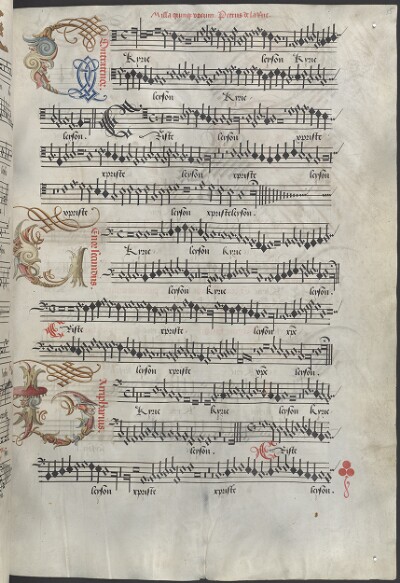 Missa quinque vocum. Petrus de la Rue.
Contratenor.
Kyrie leyson Kyrie
leyson Kyrie
leyson. Christe leyson xpriste
xpriste leyson xpriste leyson
xpriste leyson xpristeleyson.
Tenor secundus.
Kyrie leyson kyrie
leyson kyrie leyson.
Christe xpriste leyson xpe
leyson xpriste xpe leyson.
Barriphanus.
Kyrie kyrie leyson Kyrie
leyson. Christe
leyson xpriste xpriste leyson.